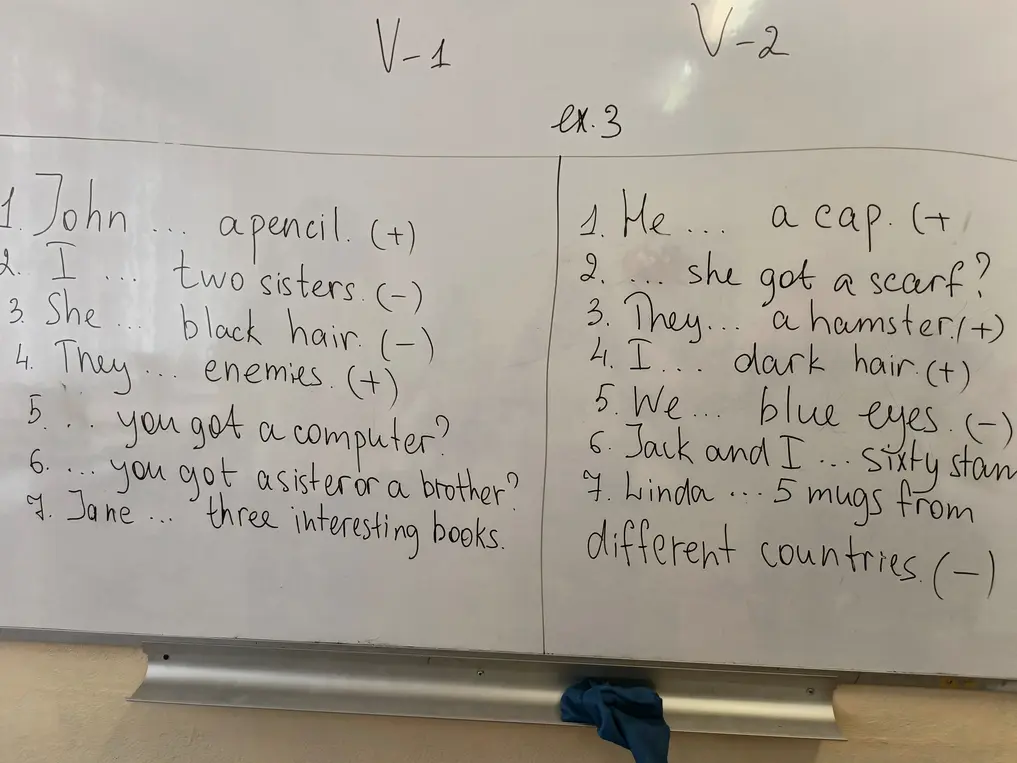 V-1
V-2
ex.3
1. John ... a pencil. (+)
2. I ... two sisters. (-)
3. She ... black hair. (-)
4. They ... enemies. (+)
5. ... you got a computer?
6. ... you got a sister or a brother?
7. Jane ... three interesting books.
1. He ... a cap. (+
2. ... she got a scarf?
3. They ... a hamster. (+)
4. I ... dark hair. (+)
5. We ... blue eyes. (-)
6. Jack and I ... sixty stam
7. Linda ... 5 mugs from
different countries. (-)